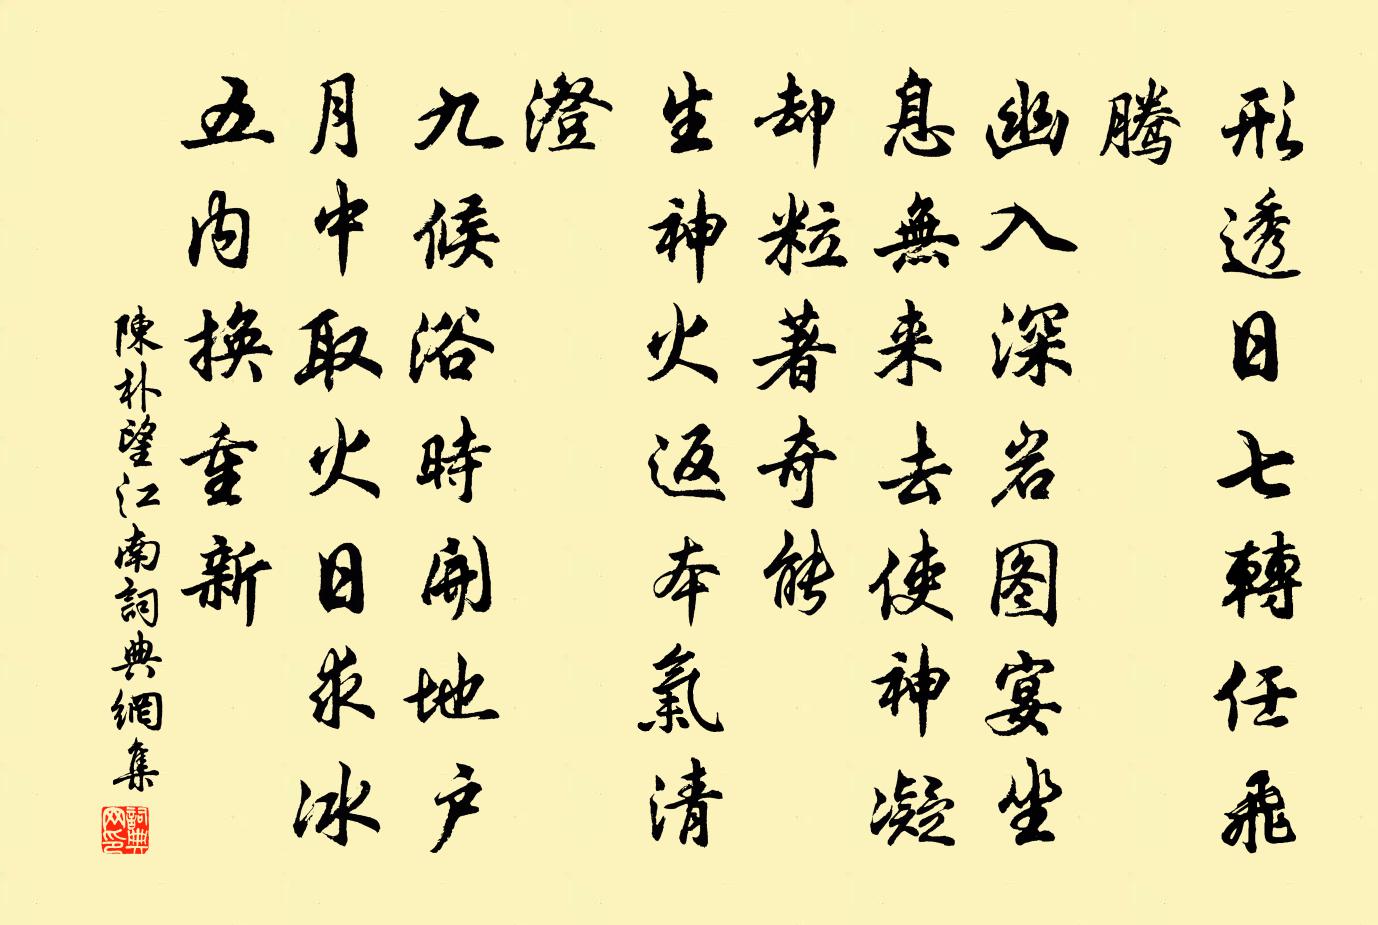 形透日七轉任飛
騰
幽入深岩图宴坐
息無来去使神凝
却粒著奇能
生神火返本氣清
澄
九候浴時開地户
月中取火日求冰
五内換重新
陳朴望江南詞典網集
詞典
网印